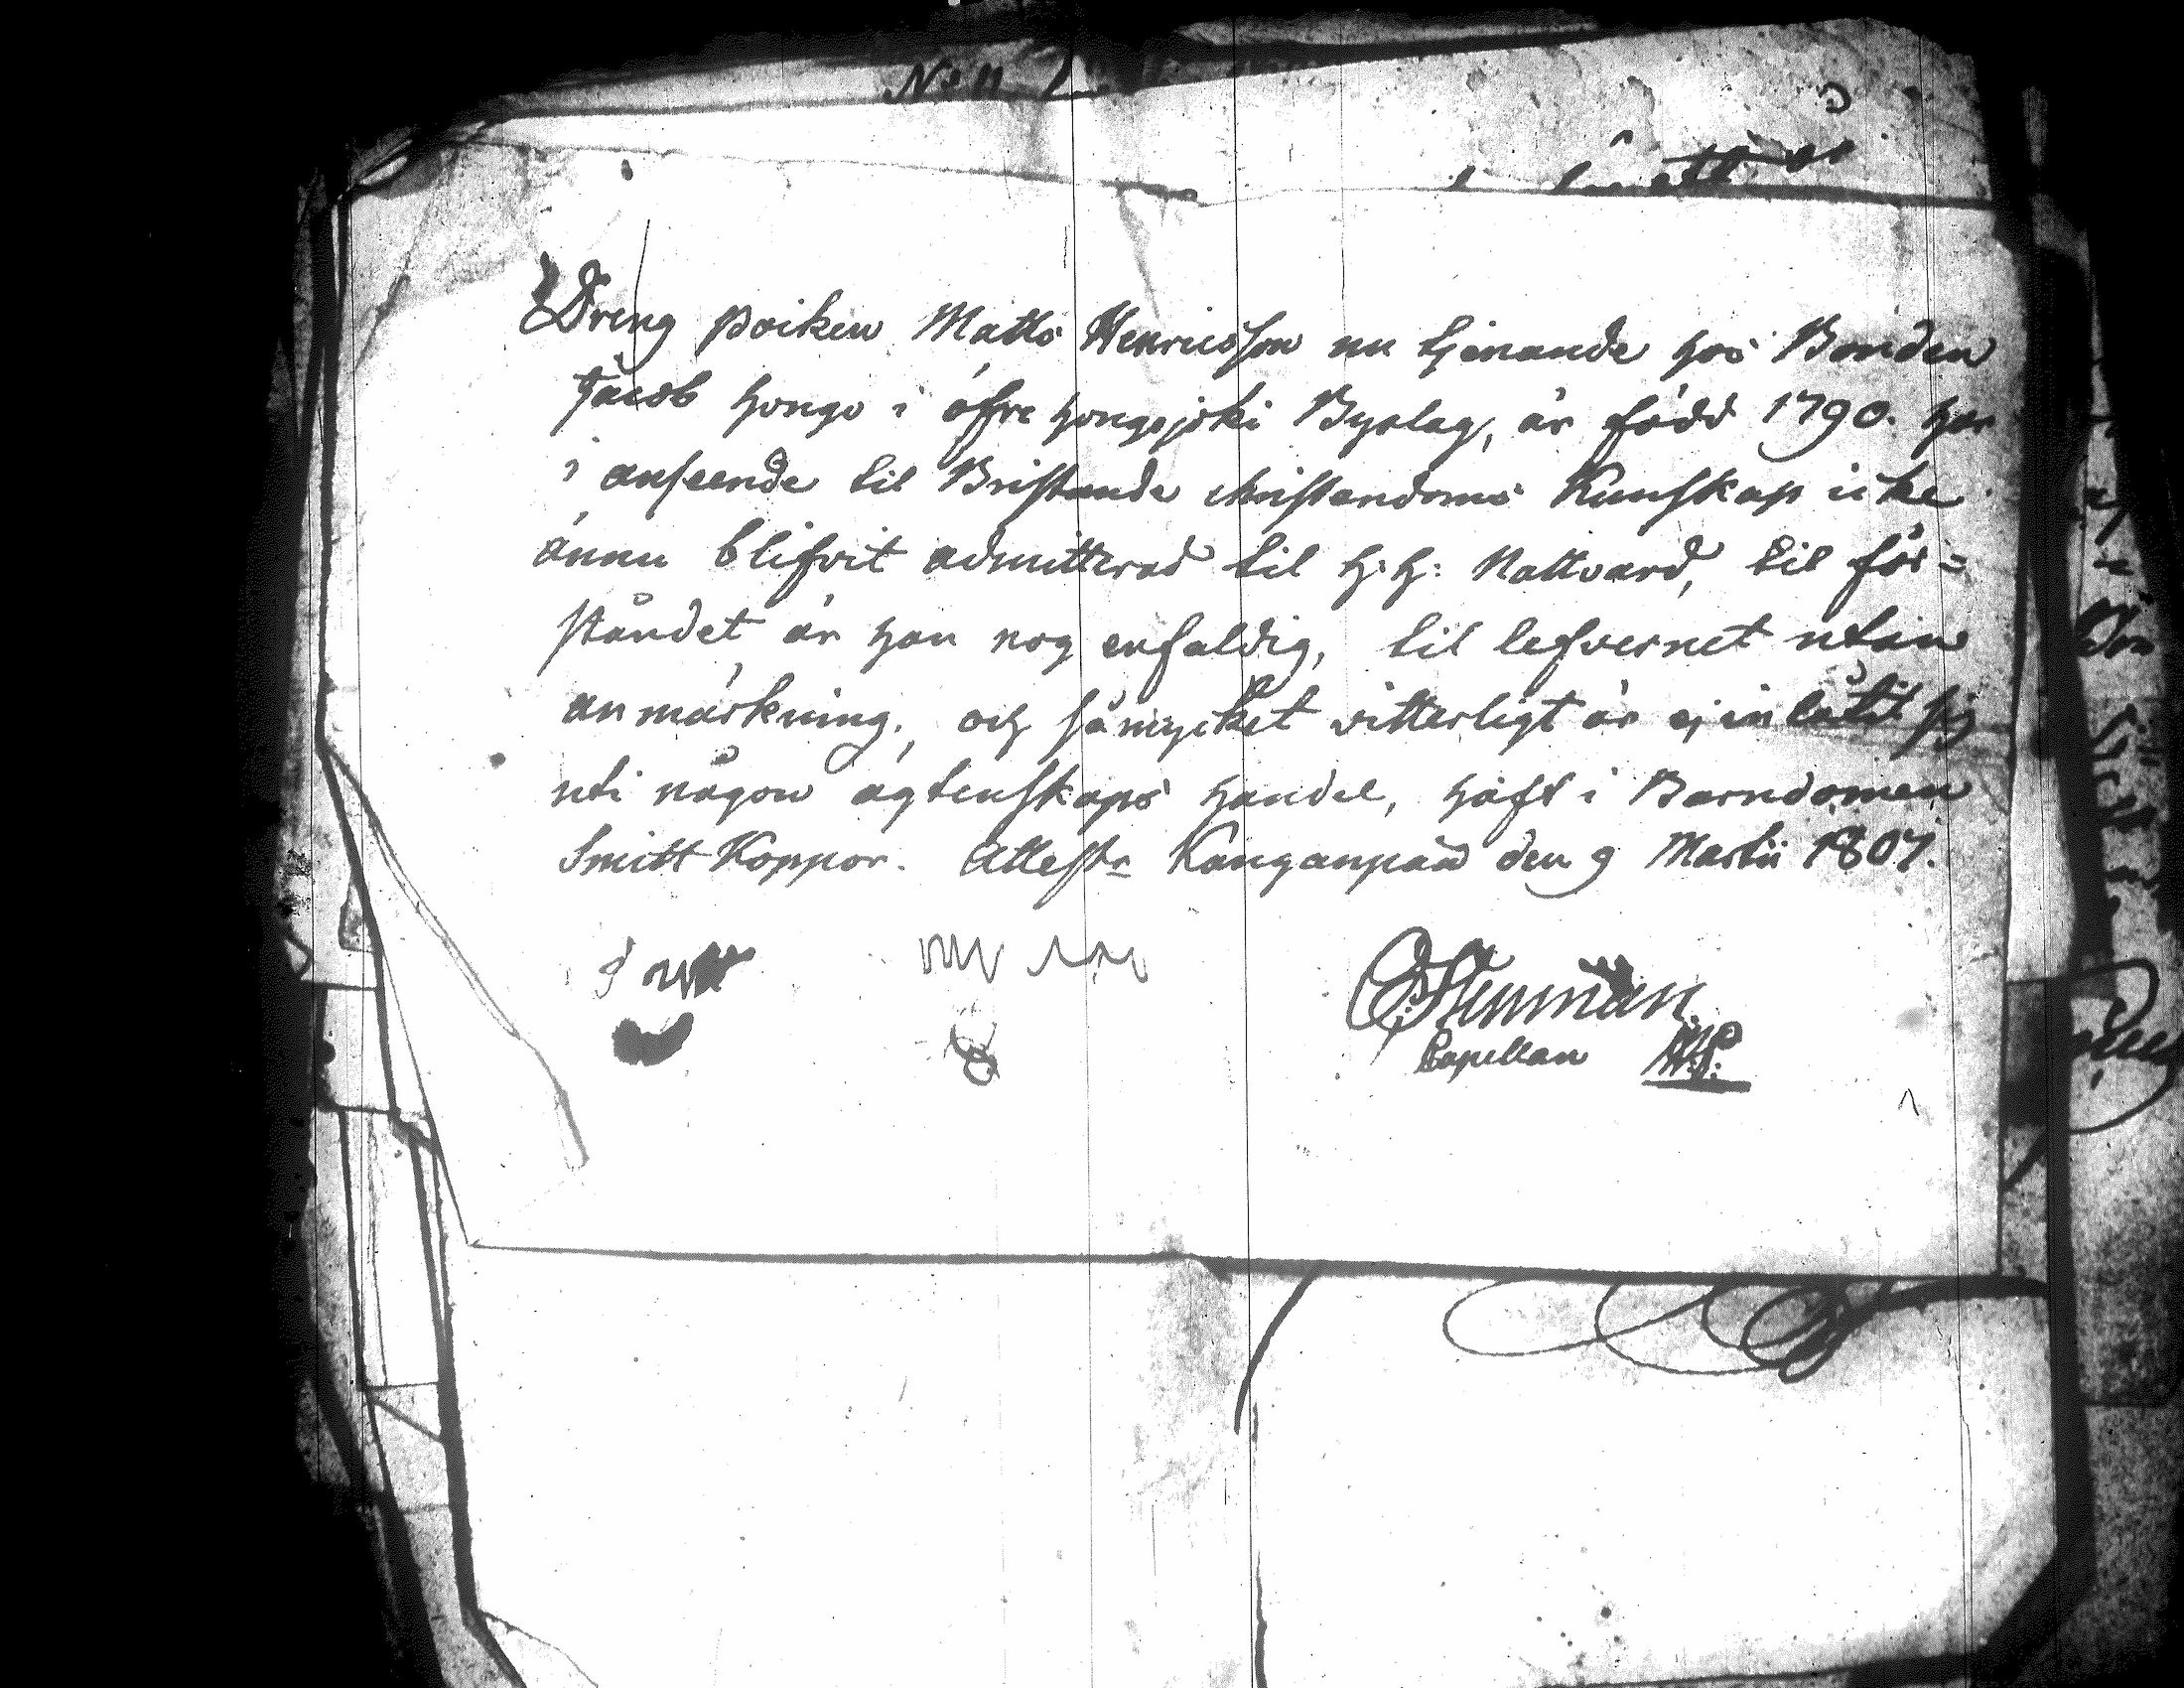 No 11
Dreng poiken Matts Henricsson nu tjenande hos Bonden
Jacob Hongo i öfre Hongojoki Byalag, är född 1790. har
i anseende til Bristande christendoms Kunskap icke
ännu blifvit admitterad til H: H: Nattvard, til för=
ståndet är han nog enfaldig, til lefvernet utan
anmärkning, och så mycket vitterligt är ej inlåtit sig
uti någon ägtenskaps handel, haft i Barndomen
Smitt Koppor. Attestr Kanganpää den 9 Martii 1807.
Stenman
Capellan